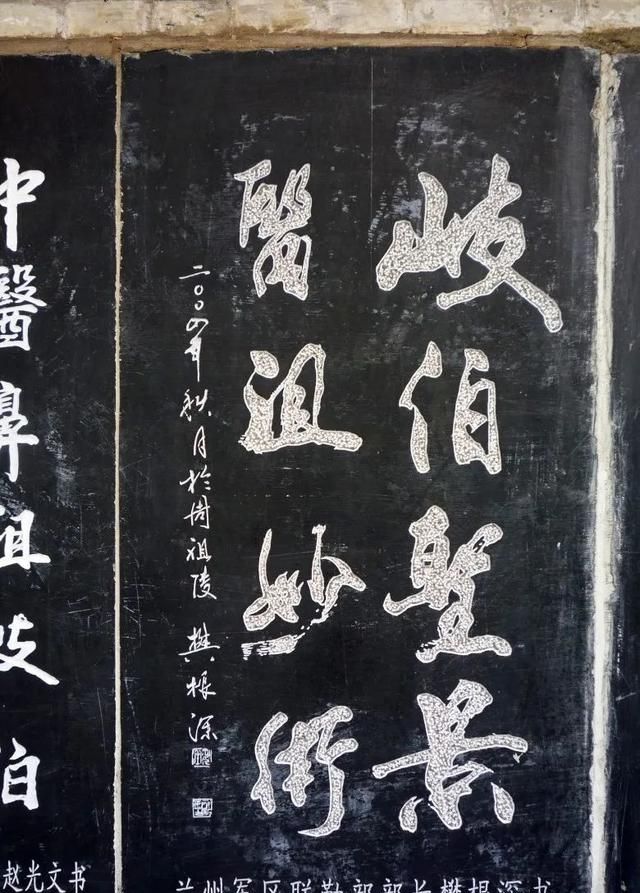 岐伯聖景
醫祖妙術
二〇〇四年秋月於周祖陵 樊根深
兰州军区联勤部部长樊根深书
中醫鼻祖岐伯
赵光文书